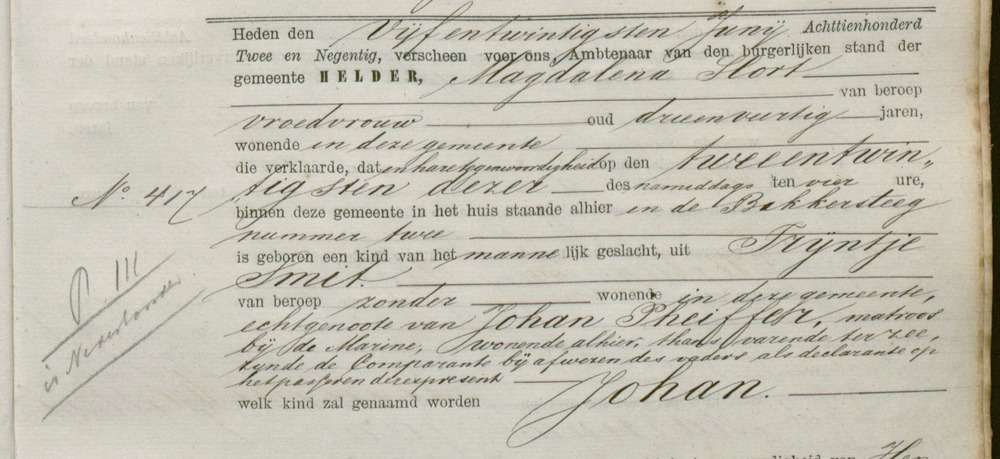 Heden den Vijfentwintigsten Junij Achttienhonderd
Twee en Negentig, verscheen voor ons, Ambtenaar van den burgerlijken stand der
gemeente HELDER, Magdalena Hort
van beroep
vroedvrouw oud drieenveertig jaren,
wonende in deze gemeente
die verklaarde, dat en hare tegenwoordigheid op den tweeentwin„
No. 417 tigsten dezer des namiddags ten vier ure,
binnen deze gemeente in het huis staande alhier in de Bakkersteeg
nummer twee
is geboren een kind van het mannelijk geslacht, uit Trijntje
Smit.
van beroep zonder wonende in deze gemeente,
echtgenoote van Johan Pheiffer, matroos
bij de Marine, wonende alhier, thans varende ter zee,
zynde de Comparante bij afwezen des vaders als declarante op
het passeren dezer present
welk kind zal genaamd worden Johan.
P III
is Nederlander